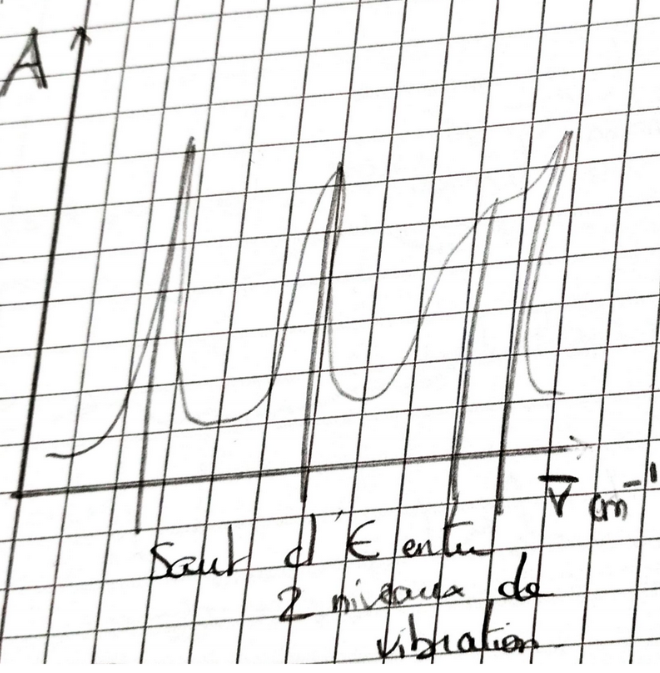 A
ν̅ cm⁻¹
Saut d'E entre
2 niveaux de
vibration